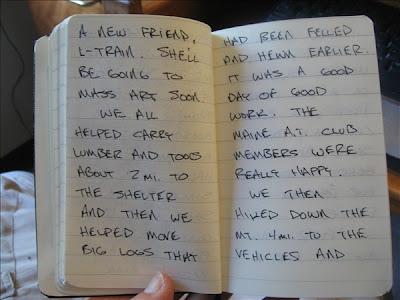 A NEW FRIEND,
L-TRAIN. SHE'LL
BE GOING TO
MASS ART SOON.
WE ALL
HELPED CARRY
LUMBER AND TOOLS
ABOUT 2 MI. TO
THE SHELTER
AND THEN WE
HELPED MOVE
BIG LOGS THAT
HAD BEEN FELLED
AND HEWN EARLIER.
IT WAS A GOOD
DAY OF GOOD
WORK. THE
MAINE A.T. CLUB
MEMBERS WERE
REALLY HAPPY.
WE THEN
HIKED DOWN THE
MT. 4 MI. TO THE
VEHICLES AND